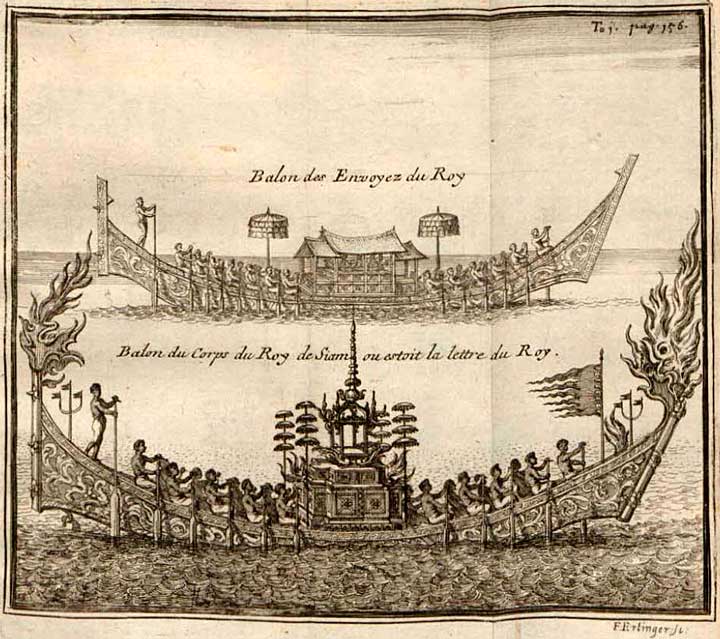 To j. pag. 156.
Balon des Envoyez du Roy
Balon du Corps du Roy de Siam ou estoit la lettre du Roy.
F. Ertinger sc: